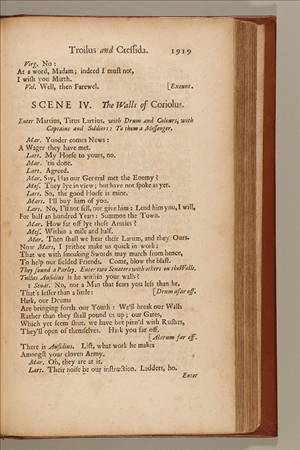 Troilus and Cressida. 1919
Virg. No:
At a word, Madam; indeed I must not,
I wish you Mirth.
Val. Well, then Farewel. [Exeunt.
SCENE IV. The Walls of Coriolus.
Enter Martius, Titus Lartius, with Drum and Colours, with
Captains and Soldiers: To them a Messenger.
Mar. Yonder comes News:
A Wager they have met.
Lart. My Horse to yours, no.
Mar. 'tis done.
Lart. Agreed.
Mar. Say, Has our General met the Enemy?
Mes. They lye in view; but have not spoke as yet.
Lart. So, the good Horse is mine.
Mart. I'll buy him of you.
Lart. No, I'll not sell, nor give him: Lend him you, I will,
For half an hundred Years: Summon the Town.
Mar. How far off lye these Armies?
Mes. Within a mile and half.
Mar. Then shall we hear their Larum, and they Ours.
Now Mars, I prithee make us quick in work;
That we with smoaking Swords may march from hence,
To help our fielded Friends. Come, blow the blast.
They sound a Parley. Enter two Senators with others on the Walls.
Tullus Aufidius is he within your walls?
1 Senat. No, nor a Man that fears you less than he,
That's lesser than a little: [Drum afar off.
Hark, our Drums
Are bringing forth our Youth: We'll break our Walls
Rather than they shall pound us up; our Gates,
Which yet seem shut, we have but pinn'd with Rushes,
They'll open of themselves. Hark you far off.
[Alarum far off.
There is Aufidius. List, what work he makes
Amongst your cloven Army.
Mar. Oh, they are at it.
Lart. Their noise be our instruction. Ladders, ho.
Enter